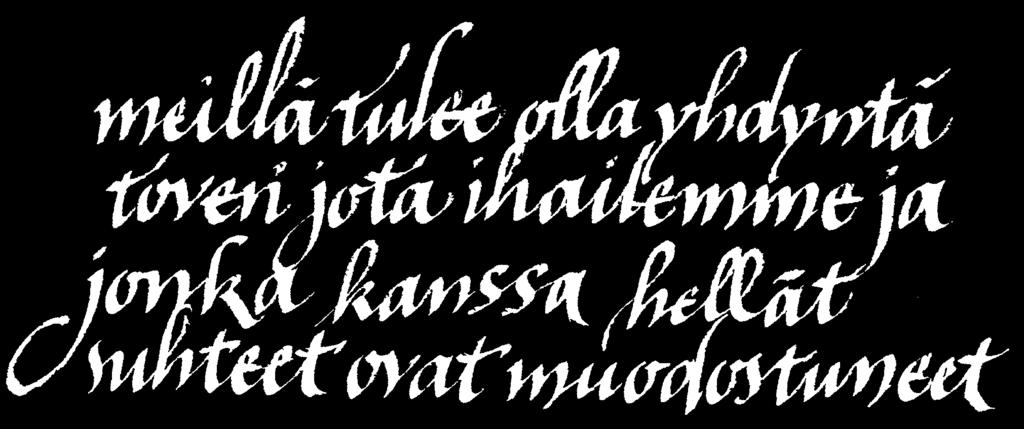 meillä tulee olla yhdyntä
toveri jota ihailemme ja
jonka kanssa hellät
suhteet ovat muodostuneet